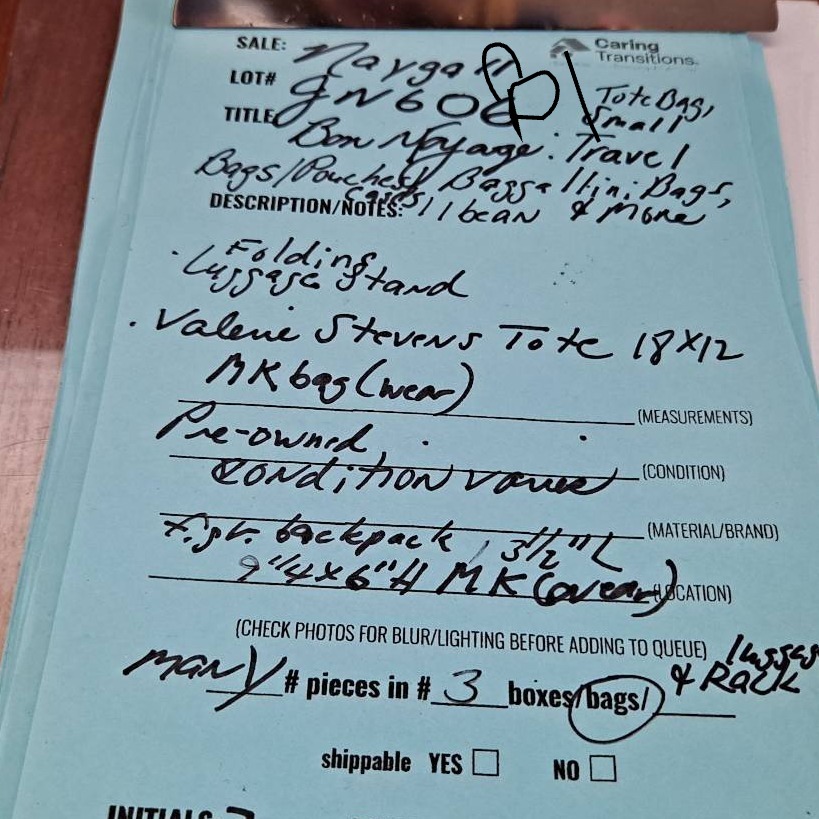 SALE: Naygall
Caring Transitions
LOT# JN606
Tote Bag, Small
TITLE Bon Voyage: Travel
Bags/Pouches/ Baggallini Bags,
Cases
DESCRIPTION/NOTES: llbean & More
. Folding
Luggage Stand
. Valerie Stevens Tote 18X12
MK bag (wear)
(MEASUREMENTS)
Pre-owned
Condition varies (CONDITION)
(MATERIAL/BRAND)
backpack, 3 1/2" L
9"4X6"H MK (wear) (LOCATION)
(CHECK PHOTOS FOR BLUR/LIGHTING BEFORE ADDING TO QUEUE)
MANY # pieces in # 3 boxes/bags/ luggage & Rack
shippable YES NO
INITIALS